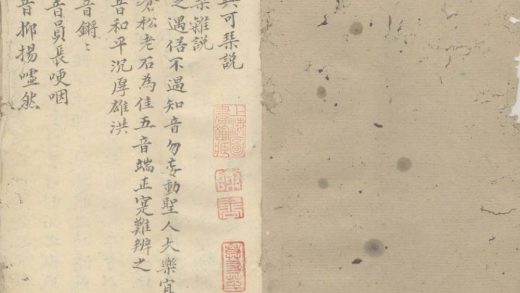 其可琴説
琴雜説
之遇侣不遇知音勿妄動聖人大樂宜
蒼松老石為佳五音端正寔難辨之
音和平沉厚雄洪
音鏘〻
音員長哽咽
音抑揚嘘然